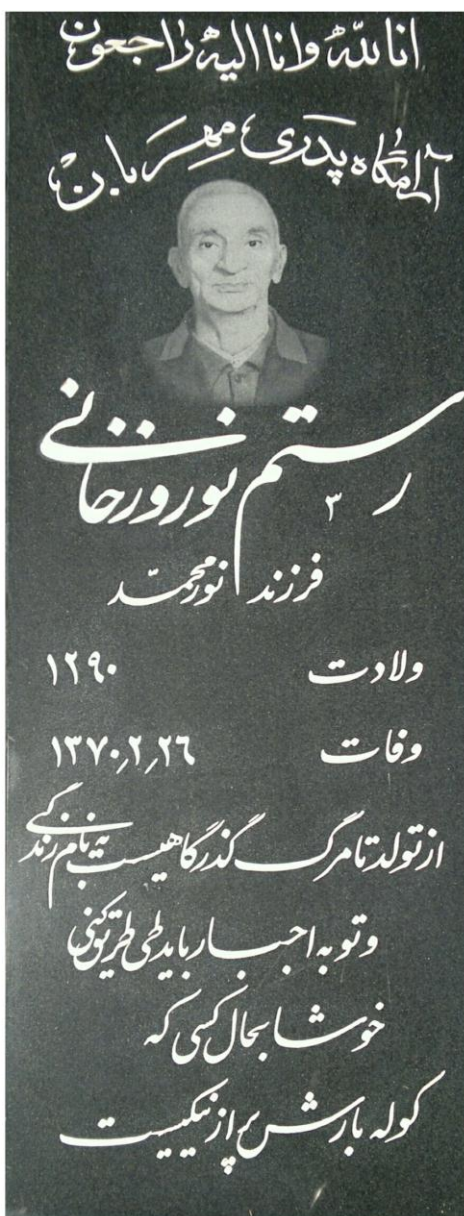 انا لله و انا الیه راجعون
آرامگاه پدری مهربان
رستم نوروزخانی
فرزند نورمحمد
ولادت ۱۲۹۰
وفات ۱۳۷۰٫۲٫۲۶
از تولد تا مرگ گذرگاهیست به نام زندگی
و تو به اجبار باید طی طریق کنی
خوشا بحال کسی که
کوله بارش پر از نیکیست